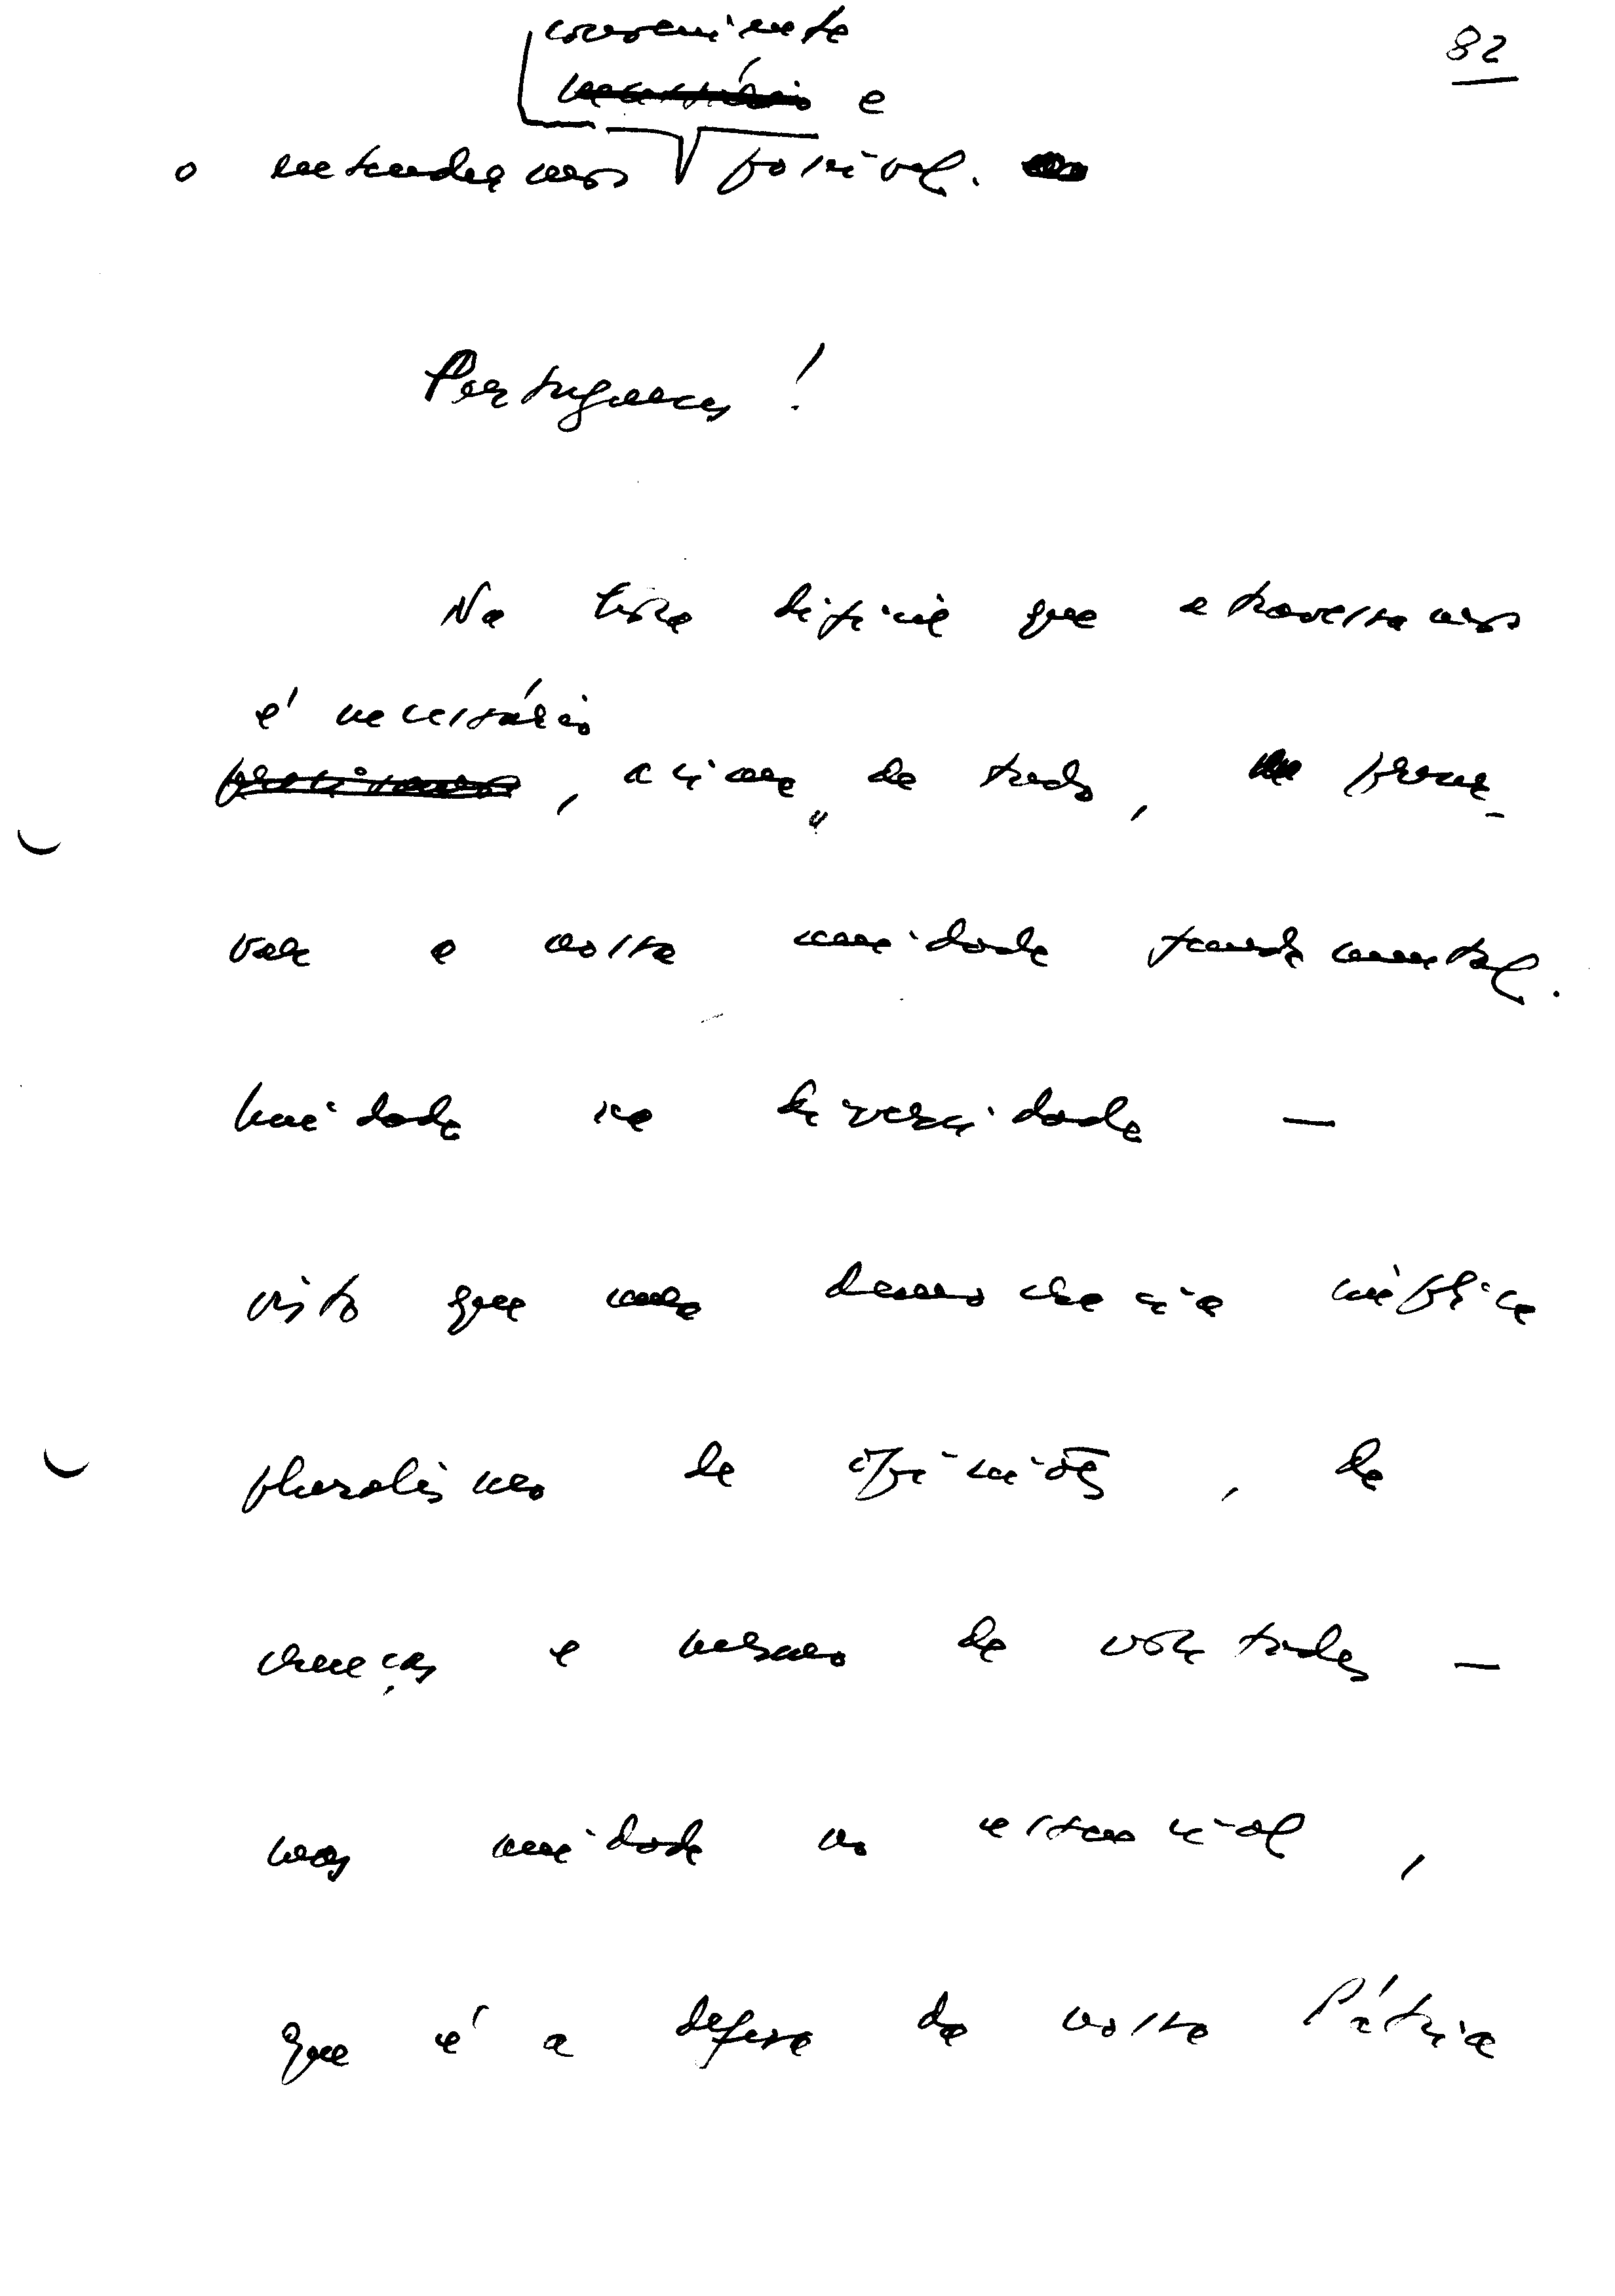 82
conveniente
necessário e
o entendermos possível.
Portugueses!
Na hora difícil que atravessamos
é necessário
precisamos, acima de tudo, provar
a nossa unidade fundamental.
Unidade na diversidade —
visto que uma democracia implica
pluralismo de opiniões, de
crenças e mesmo de vontades —
mas unidade no essencial,
que é a defesa da nossa Pátria